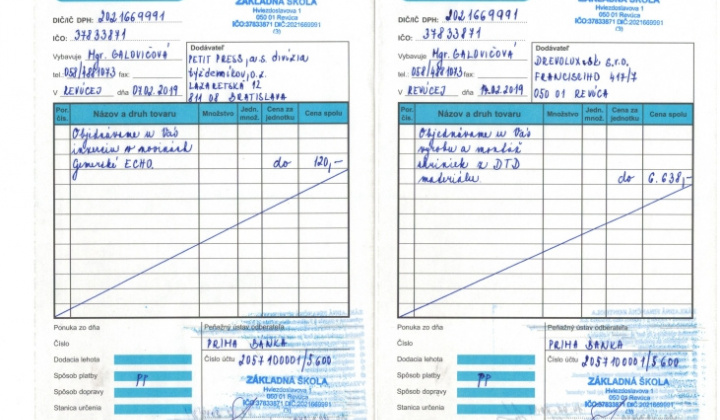 ZÁKLADNÁ ŠKOLA
Hviezdoslavova 1
050 01 Revúca
IČO:37833871 DIČ:2021669991
(3)
DIČ/IČ DPH: 2021669991
IČO: 37833871
Vybavuje Mgr. GALOVIČOVÁ
tel. 058/4881073 fax:
V REVÚCEJ dňa 07.02.2019
Dodávateľ
PETIT PRESS, a.s. divízia
týždenníkov, o.z.
LAZARETSKÁ 12
811 08 BRATISLAVA
Por. čís.
Názov a druh tovaru
Množstvo
Jedn. množ.
Cena za jednotku
Cena spolu
Objednávame u Vás
inzerciu v novinách
Gemerské ECHO. do 120,-
Ponuka zo dňa
Číslo
Dodacia lehota
Spôsob platby PP
Spôsob dopravy
Stanica určenia
Peňažný ústav odberateľa
PRIMA BANKA
Číslo účtu 2057100001/5600
ZÁKLADNÁ ŠKOLA
Hviezdoslavova 1
050 01 Revúca
IČO:37833871 DIČ:2021669991
(3)
ZÁKLADNÁ ŠKOLA
Hviezdoslavova 1
050 01 Revúca
IČO:37833871 DIČ:2021669991
(3)
DIČ/IČ DPH: 2021669991
IČO: 37833871
Vybavuje Mgr. GALOVIČOVÁ
tel. 058/4881073 fax:
V REVÚCEJ dňa 14.02.2019
Dodávateľ
DREVOLUX-sk s.r.o.
FRANCISCIHO 417/7
050 01 REVÚCA
Por. čís.
Názov a druh tovaru
Množstvo
Jedn. množ.
Cena za jednotku
Cena spolu
Objednávame u Vás
výrobu a montáž
skriniek z DTD
materiálu do 6.638,-
Ponuka zo dňa
Číslo
Dodacia lehota
Spôsob platby PP
Spôsob dopravy
Stanica určenia
Peňažný ústav odberateľa
PRIMA BANKA
Číslo účtu 2057100001/5600
ZÁKLADNÁ ŠKOLA
Hviezdoslavova 1
050 01 Revúca
IČO:37833871 DIČ:2021669991
(3)